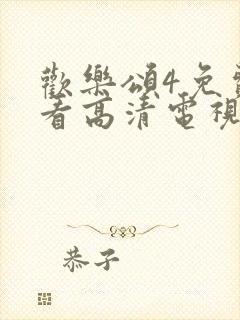 歡樂頌4免
看高清電視
恭子